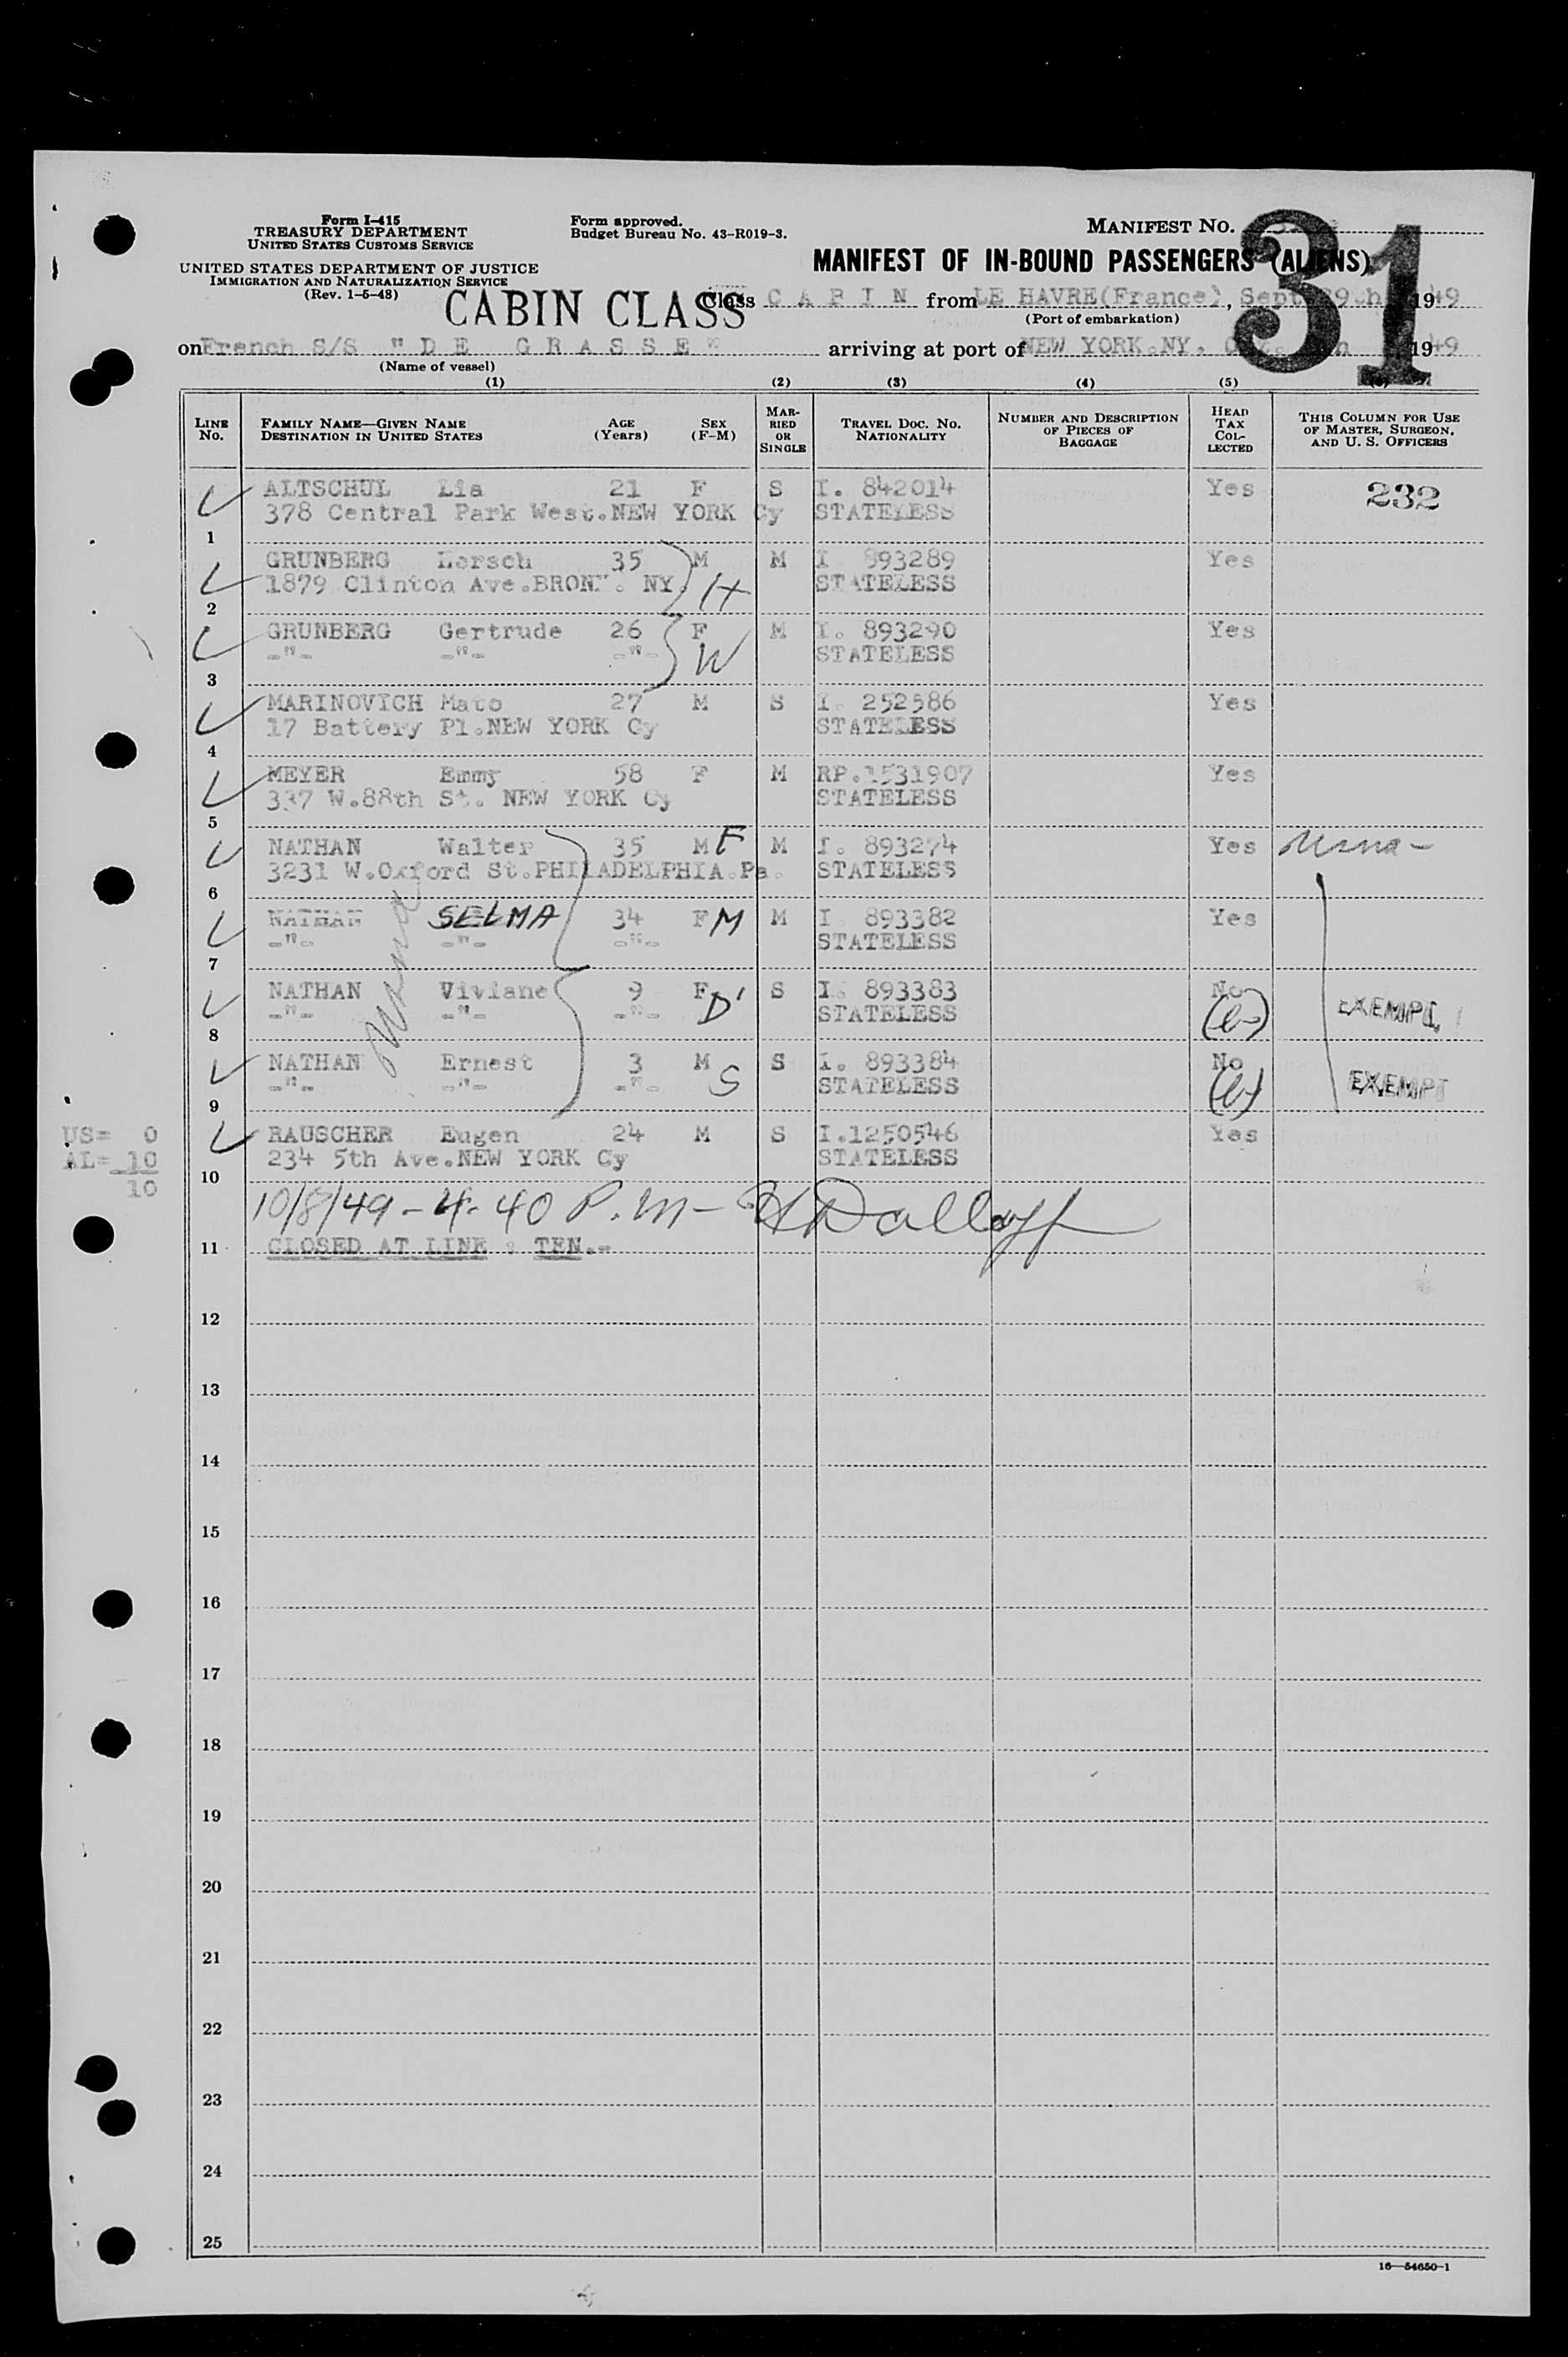 Form I-415
TREASURY DEPARTMENT
UNITED STATES CUSTOMS SERVICE
UNITED STATES DEPARTMENT OF JUSTICE
IMMIGRATION AND NATURALIZATION SERVICE
(Rev. 1-5-48)
Form approved.
Budget Bureau No. 43-R019-3.
MANIFEST NO.
31
MANIFEST OF IN-BOUND PASSENGERS (ALIENS)
CABIN CLASS
Class C A B I N from LE HAVRE(France), Sept. 1949
(Port of embarkation)
on French S/S "D E G R A S S E" arriving at port of NEW YORK.NY. 1949
(Name of vessel)
(1) (2) (3) (4) (5)
LINE No. FAMILY NAME—GIVEN NAME DESTINATION IN UNITED STATES AGE (Years) SEX (F-M) MARRIED OR SINGLE TRAVEL DOC. NO. NATIONALITY NUMBER AND DESCRIPTION OF PIECES OF BAGGAGE HEAD TAX COLLECTED THIS COLUMN FOR USE OF MASTER, SURGEON, AND U. S. OFFICERS
ALTSCHUL Lia 21 F S I. 842014 Yes 232
378 Central Park West.NEW YORK Cy STATELESS
1
GRUNBERG Lersch 35 M M I 893289 Yes
1879 Clinton Ave.BRONX. NY. H STATELESS
2
GRUNBERG Gertrude 26 F M I. 893290 Yes
-"- -"- -"- W STATELESS
3
MARINOVICH Mato 27 M S I. 252586 Yes
17 Battery Pl.NEW YORK Cy STATELESS
4
MEYER Emmy 58 F M RP.1531907 Yes
337 W.88th St. NEW YORK Cy STATELESS
5
NATHAN Walter 35 M F M I. 893274 Yes
3231 W.Oxford St.PHILADELPHIA.Pa. STATELESS
6
NATHAN SELMA 34 F M M I 893382 Yes
-"- -"- -"- STATELESS
7
NATHAN Viviane 9 F D S I. 893383 No
-"- -"- -"- STATELESS EXEMPT
8
NATHAN Ernest 3 M S S I. 893384 No
-"- -"- -"- STATELESS EXEMPT
9
US= 0
AL= 10
10
RAUSCHER Eugen 24 M S I.1250546 Yes
234 5th Ave.NEW YORK Cy STATELESS
10
10/8/49 - 4.40 P.M -
11 CLOSED AT LINE : TEN.-
12
13
14
15
16
17
18
19
20
21
22
23
24
25
16—54650-1